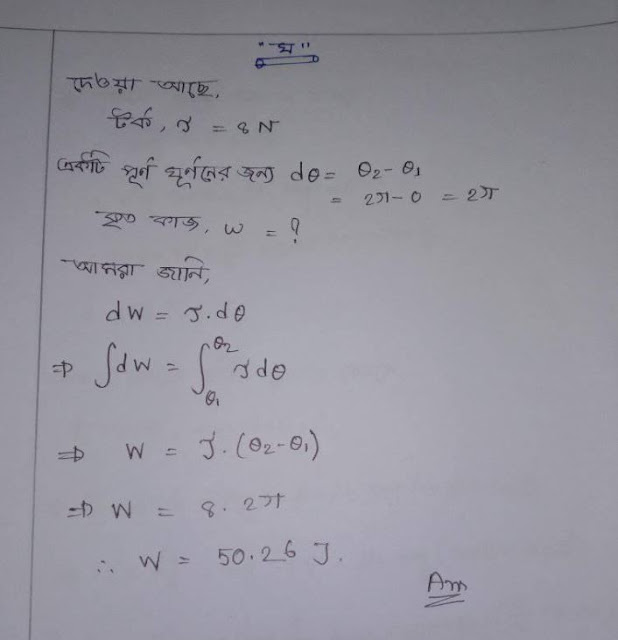 "ঘ"
দেওয়া আছে,
টর্ক, τ = 8 N
একটি পূর্ণ ঘূর্ণনের জন্য dθ = θ₂ - θ₁
= 2π - 0 = 2π
কৃত কাজ, W = ?
আমরা জানি,
dW = τ.dθ
⇒ ∫dW = ∫θ₁^θ₂ τdθ
⇒ W = τ.(θ₂-θ₁)
⇒ W = 8.2π
∴ W = 50.26 J.
Ans